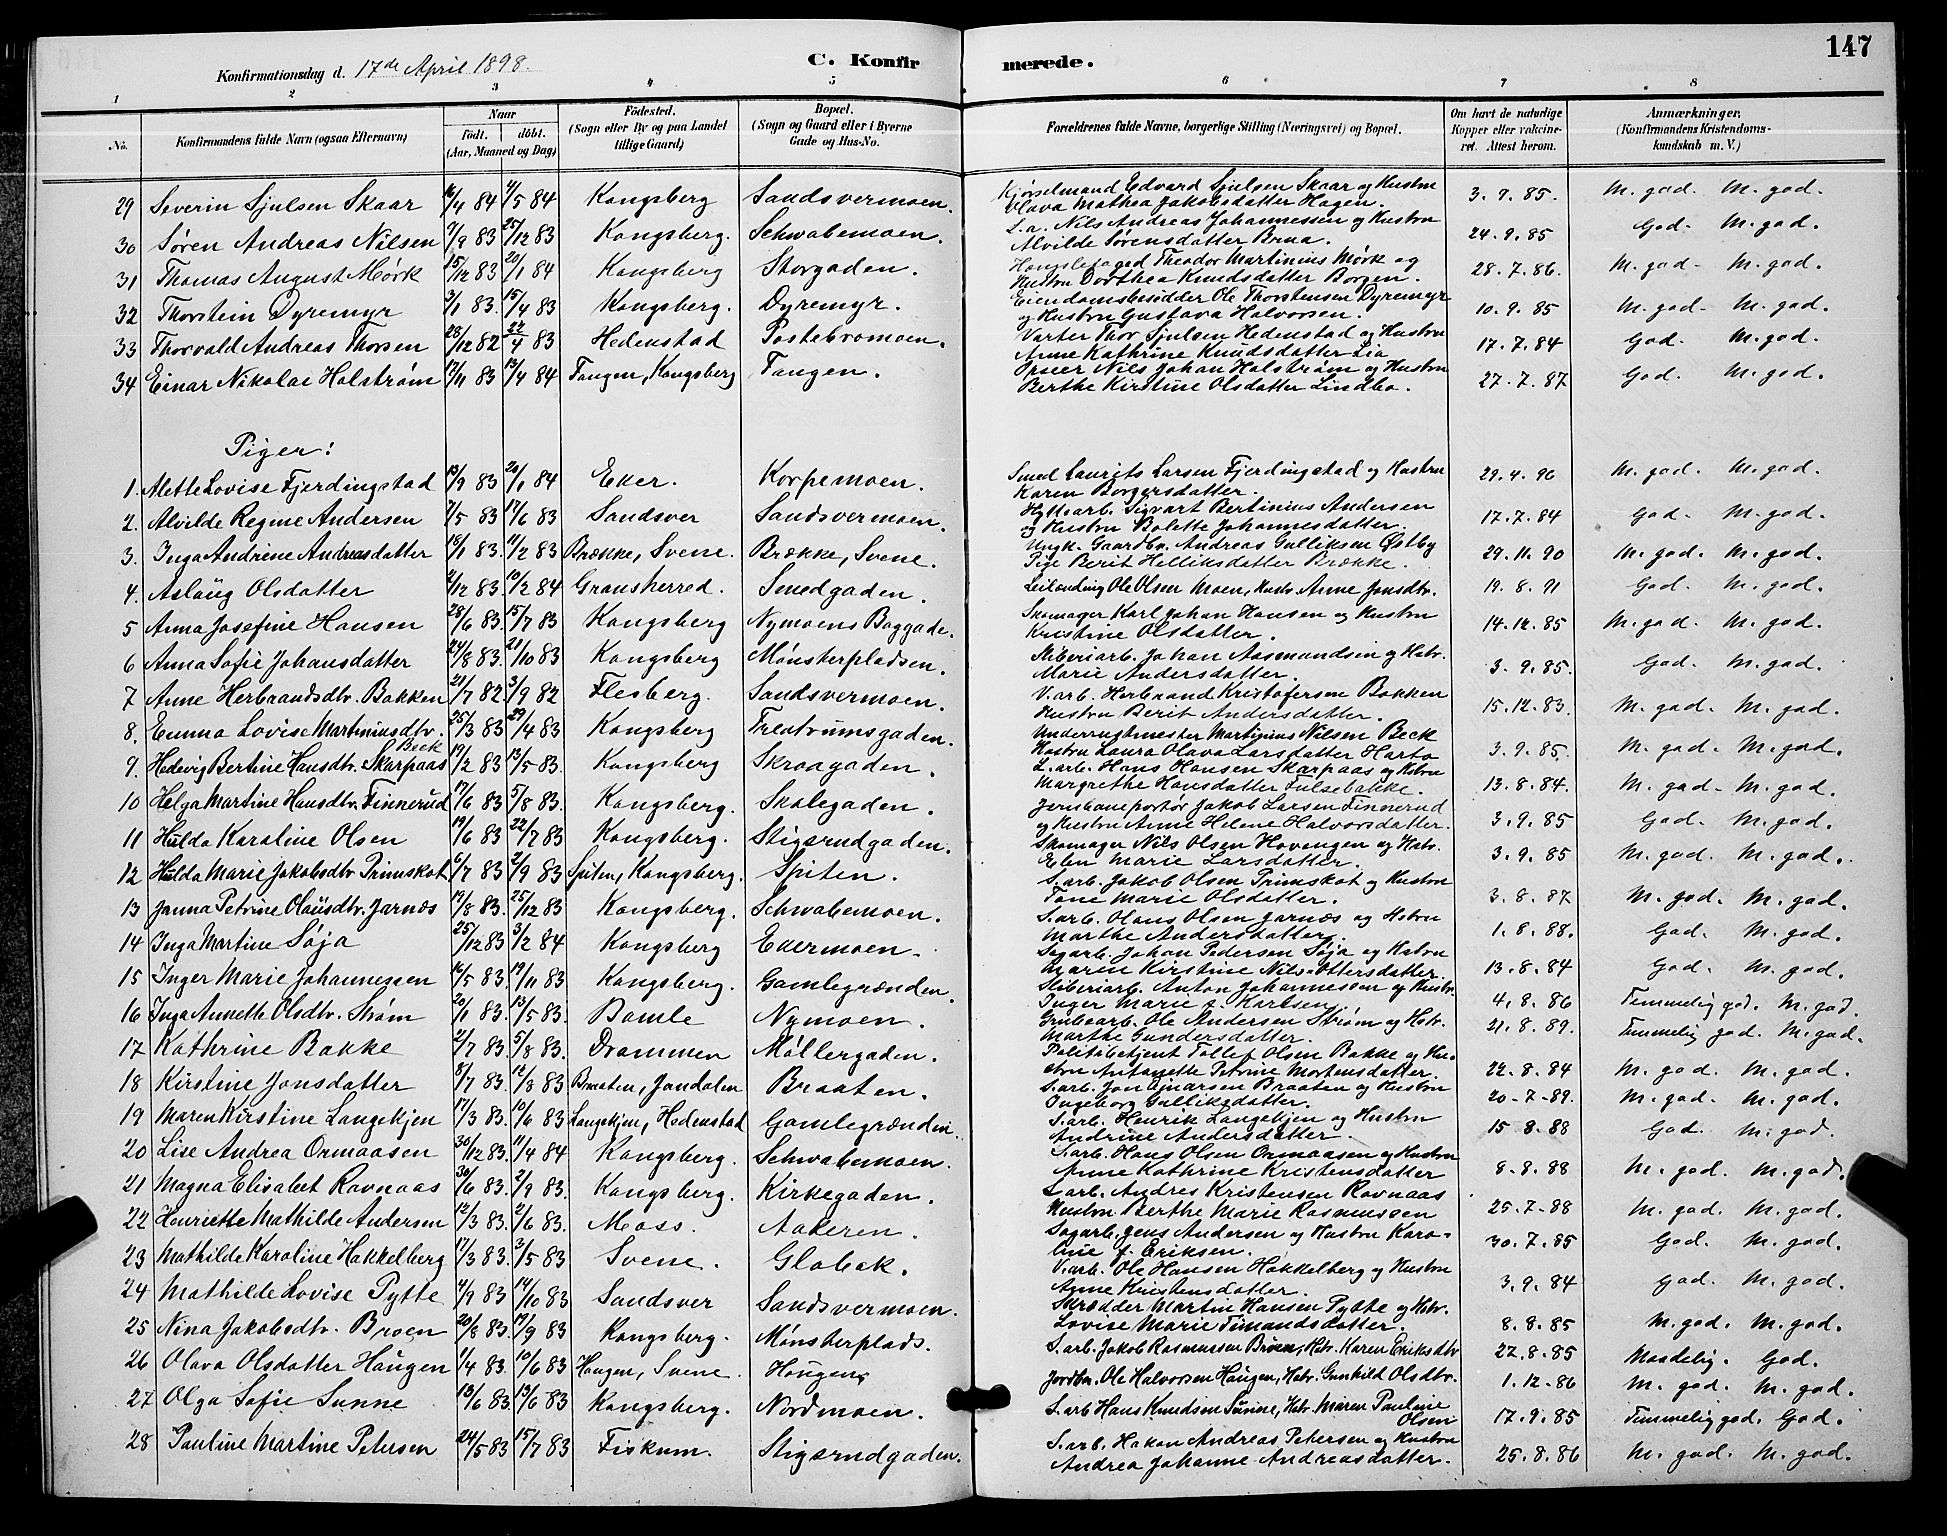 147
Konfirmationsdag d. 17de April 1898. C. Konfirmerede.
1 2 3 4 5 6 7 8
No. Konfirmandens fulde Navn (ogsaa Efternavn) Naar födt. döbt. (Aar, Maaned og Dag) Födested. (Sogn eller By og paa Landet tillige Gaard) Bopæl. (Sogn og Gaard eller i Byerne Gade og Hus-No. Forældrenes fulde Navne, borgerlige Stilling (Næringsvei) og Bopæl. Om havt de naturlige Kopper eller vakcineret. Attest herom. Anmærkninger. (Konfirmandens Kristendomskundskab m. V.)
29 Severin Sjulsen Skaar 16/4 84 4/5 84 Kongsberg Sandsvermoen. Kjørselmand Edvard Sjulsen Skaar og Hustru Olava Mathea Jakobsdatter Hagen. 3. 9. 85. M. god. M. god.
30 Søren Andreas Nilsen 7/9 83 25/12 83 Kongsberg. Schwabemoen. S. a. Nils Andreas Johannessen og Hustru Alvilde Sørensdatter Brua. 24. 9. 85 God. M. god.
31 Thomas August Mørk 15/12 83 20/1 84 Kongsberg Storgaden. Theodor Martinius Mørk og Hustru Dorthea Knudsdatter Borgen. 28. 7. 86. M. god. M. god.
32 Thorstein Dyremyr 3/1 83. 15/4 83 Kongsberg. Dyremyr. Eiendomsbesidder Ole Thorstensen Dyremyr og Hustru Gustava Halvorsen. 10. 9. 85 M. god. M. god.
33 Thorvald Andreas Thorsen 28/12 82 22/4 83 Hedenstad Postebromoen. Thor Sjulsen Hedenstad og Hustru Anne Kathrine Knudsdatter Lia 17. 7. 84 God. M. god.
34 Einar Nikolai Holstrøm 17/11 83 13/4 84 Tangen, Kongsberg Tangen. Nils Johan Holstrøm og Hustru Berthe Kirstine Olsdatter Lindbo. 27. 7. 87 God. M. god.
Piger:
1. Alette Lovise Fjerdingstad 19/9 83 20/1 84 Eker. Korpemoen. Smed Laurits Larsen Fjerdingstad og Hustru Karen Borgersdatter. 29. 4. 96 M. god. M. god.
2. Alvilde Regine Andersen 7/5 83 17/6 83 Sandsver Sandsvermoen. Hyttearb. Sigvart Bertinius Andersen og Hustru Bolette Johannesdatter. 17. 7. 84 God. M. god.
3. Inga Andrine Andreasdatter 18/1 83. 11/2 83 Brække, Svene. Brække, Svene. Ungk. Gaardbr. Andreas Gulliksen Østby Pige Berit Helliksdatter Brække. 29. 11. 90 M. god. M. god.
4. Aslaug Olsdatter 4/12 83. 10/2 84 Gransherred. Smedgaden. Leilending Ole Olsen Moen, Hustr. Anne Jonsdtr. 19. 8. 91 God. M. god.
5 Anna Josefine Hansen 28/6 83. 15/7 83 Kongsberg Nymoens Baggade. Skomager Karl Johan Hansen og Hustru Kristine Olsdatter. 14. 12. 85 M. god. M. god.
6 Anna Sofie Johansdatter 24/8 83. 21/10 83 Kongsberg Mønsterpladsen. Stiberiarb. Johan Aasmundsen og Hstr. Marie Andersdatter. 3. 9. 85. God. M. god.
7 Anne Herbrandsdtr. Bakken 21/7 82. 3/9 82 Flesberg. Sandsvermoen. V. arb. Herbrand Kristofersen Bakken Hustru Berit Andersdatter. 15. 12. 83. M. god. M. god.
8. Emma Lovise Martiniusdtr. Beck 25/3 83 29/4 83 Kongsberg Trestrumsgaden. Martinius Nilsen Beck Hustru Laura Olava Larsdatter 3. 9. 85. M. god. M. god.
9. Hedevig Bertine Hansdtr. Skarpaas 19/2 83 13/5 83. Kongsberg Skraagaden. S. arb. Hans Hansen Skarpaas og Hstru Margrethe Hansdatter Fulsebakke. 13. 8. 84. M. god. M. god.
10 Helga Martine Hansdtr. Finnerud 17/6 83 5/8 83. Kongsberg. Skolegaden. Jernbaneportør Jakob Larsen Finnerud og Hustru Anne Helene Halvorsdatter. 3. 9. 85 God. M. god.
11 Hulda Karoline Olsen 19/6 83 22/7 83 Kongsberg. Stigsrudgaden. Skomager Nils Olsen Hovengen og Hstr. Elen Marie Larsdatter. 3. 9. 85 M. god. M. god.
12 Hulda Marie Jakobsdtr Primskot 6/7 83 2/9 83 Spiten, Kongsberg. Spiten. S. arb. Jakob Olsen Primskot og Hustru Tone Marie Olsdatter. 3. 8. 87 M. god. M. god.
13 Janna Petrine Olausdtr. Jarnæs 19/8 83. 25/12 83 Kongsberg. Schwabemoen. S. arb. Olaus Olsen Jarnæs og Hstru Marthe Andersdatter. 1. 8. 88. God. M. god.
14 Inga Martine Søja 25/12 83 3/2 84 Kongsberg Edermoen. Sagarb. Johan Pedersen Søja og Hstru Maren Kirstine Nils-Ottersdatter. 13. 8. 84 God. M. god.
15 Inger Marie Johannessen 16/5 83. 19/11 83 Kongsberg. Gamlegrænden. Stiberiarb. Anton Johannessen og Hustr. Inger Marie f. Karlsen. 4. 8. 86 Temmelig god. M. god.
16 Inga Annette Olsdtr. Strøm 20/1 83 13/5 83. Bamle Nymoen. Grubearb. Ole Andersen Strøm og Hstr. Marthe Gundersdatter. 21. 8. 89. Temmelig god. M. god.
17 Kathrine Bakke 2/7 83. 5/8 83. Drammen Møllergaden. Politibetjent Tollef Olsen Bakke og Hustru Antonette Petrine Mortensdatter. 22. 8. 84 M. god. M. god.
18 Kirstine Jonsdatter 8/7 83. 12/8 83 Braaten, Jondalen Braaten. S. arb. Jon Ejnarsen Braaten og Hustru Ingeborg Gulliksdatter. 20-7-89. M. god. M. god.
19 Maren Kirstine Langekjen 17/3 83. 10/6 83 Langekjen, Hedenstad Gamlegrænden. S. arb. Henrik Langekjen og Hustru Andrine Andersdatter. 15. 8. 88 God. M. god.
20 Lise Andrea Ormaasen 30/12 83. 11/4 84 Kongsberg. Schwabemoen. S. arb. Hans Olsen Ormaasen og Hustru Anne Kathrine Kristensdatter 8. 8. 88 M. god. M. god.
21 Magna Elisabet Ravnaas 30/6 83. 2/9 83. Kongsberg. Kirkegaden. S. arb. Andres Kristensen Ravnaas Hustru Berthe Marie Rasmussen 25. 7. 88 M. god. M. god.
22 Henriette Mathilde Andersen 12/3 83. 2/6 83. Moss. Aakeren. Sagarb. Jens Andersen og Hustru Karoline f. Eriksen. 30. 7. 85 God. M. god.
23 Mathilde Karoline Hakkelberg 17/3 83. 3/5 83. Svene. Glabak. V. arb. Ole Hansen Hakkelberg og Hustru Anne Kristensdatter. 3. 9. 84 God. M. god.
24 Mathilde Lovise Pytte 4/9 83 14/10 83. Sandsver Sandsvermoen. Skrædder Martin Hansen Pytte og Hstr. Lovise Marie Timandsdatter. 8. 8. 85 M. god. M. god.
25 Nina Jakobsdtr. Broen 20/8 83. 19/9 83 Kongsberg. Mønsterplads. S. arb. Jakob Rasmussen Broen, Hstr. Karen Eriksdtr 27. 8. 85 Maadelig. God.
26 Olava Olsdatter Haugen 1/4 83. 10/6 83 Haugen, Svene. Haugen. Jordbr. Ole Halvorsen Haugen, Hstr. Gunhild Olsdtr. 1. 12. 86 M. god. M. god.
27 Olga Sofie Sunne 13/6 83. 13/6 83 Kongsberg. Nordmoen. S. arb Hans Knudsen Sunne, Hstr. Maren Pauline Olsen 17. 9. 85 Temmelig god. God.
28 Pauline Martine Petersen 24/5 83 15/7 83 Fiskum. Stigsrudgaden. S. arb. Hakon Andreas Petersen og Hustru Andrea Johanne Andreasdatter. 25. 8. 86 M. god. M. god.